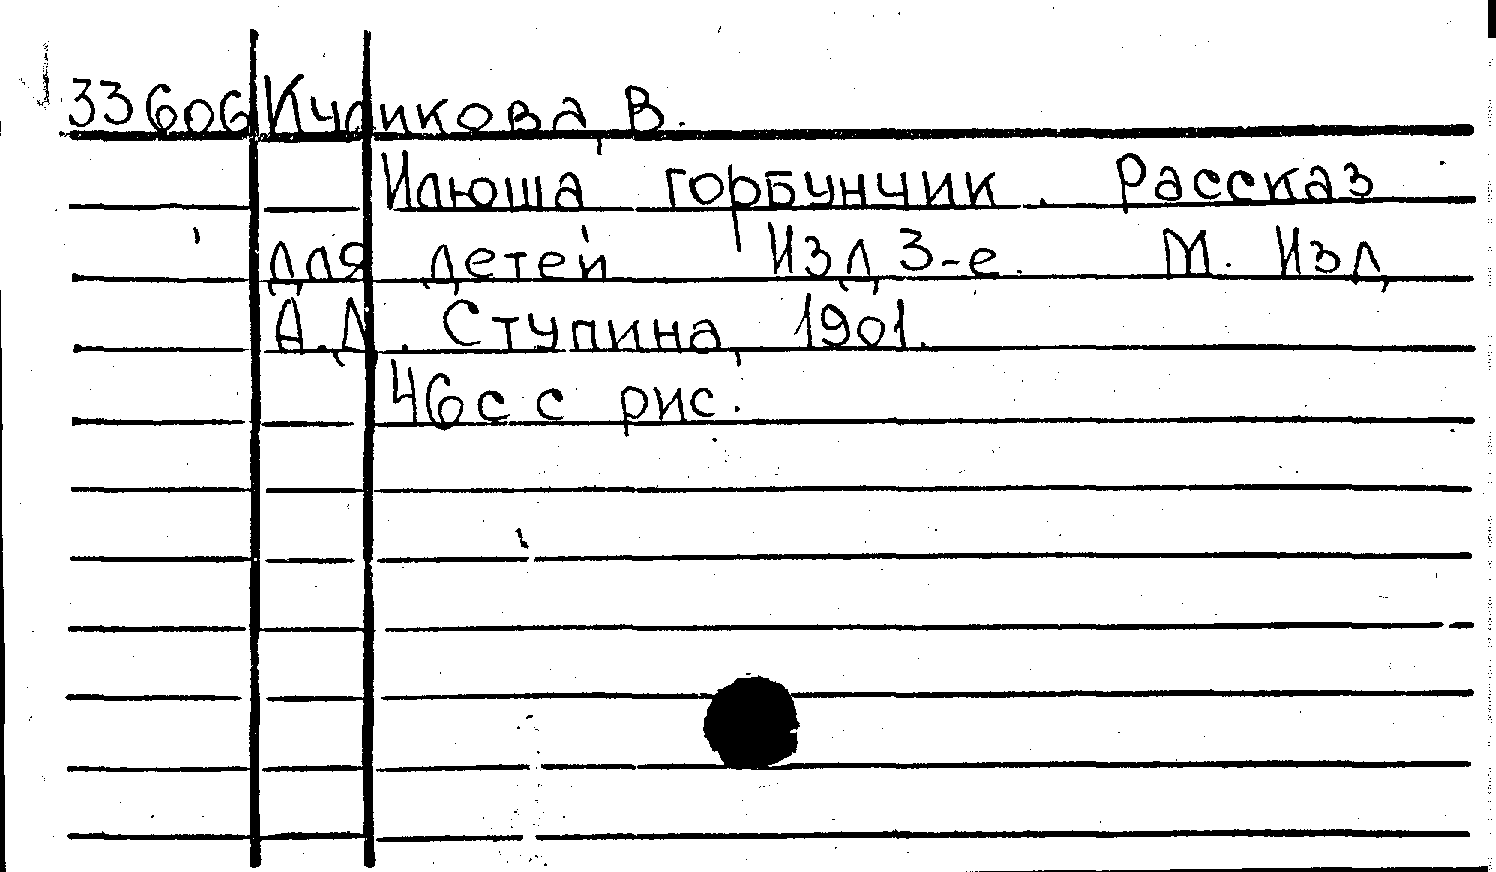 33606 Куликова, В.
Илюша горбунчик. Рассказ
для детей Изд 3-е. М. Изд.
А.Д. Ступина, 1901.
46с с рис.